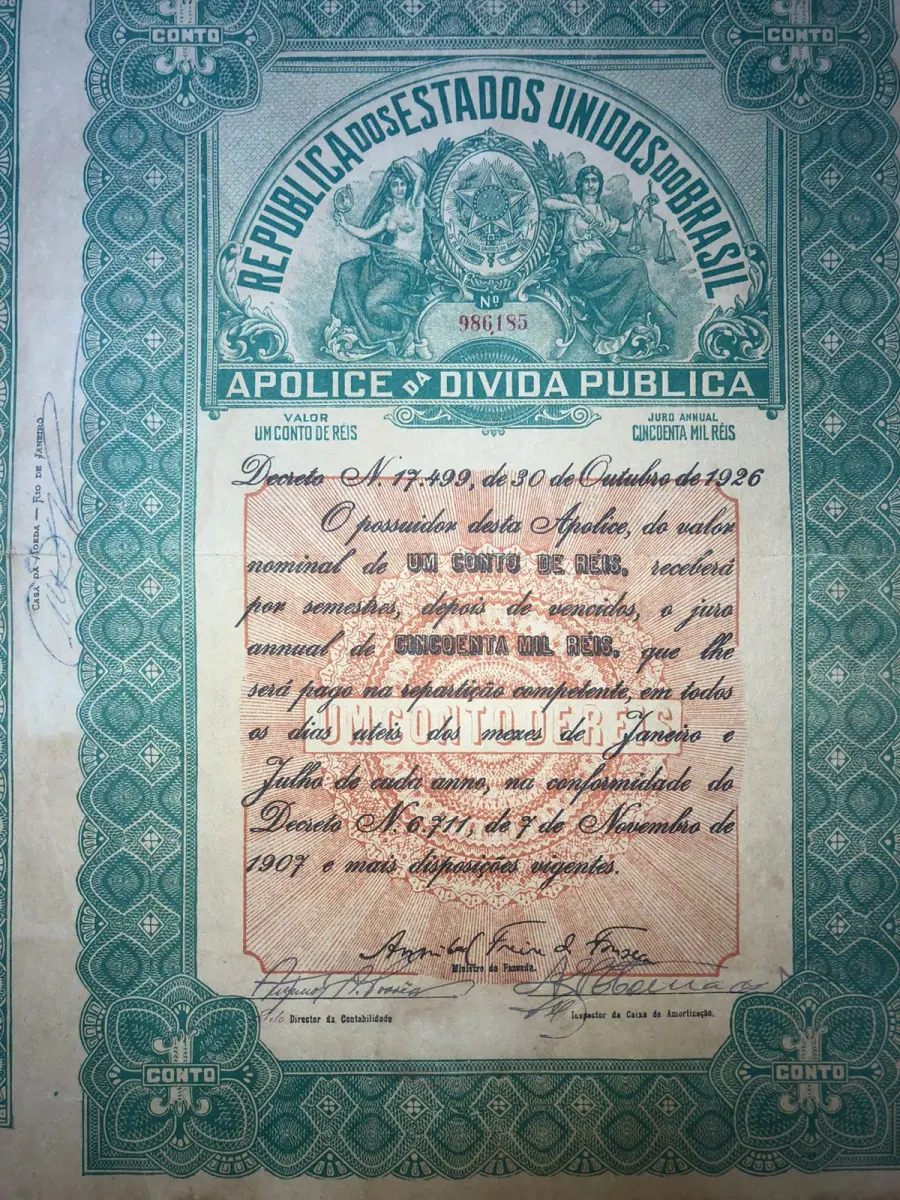 CONTO
CONTO
REPUBLICA DOS ESTADOS UNIDOS DO BRASIL
Nº
986,185
APOLICE DA DIVIDA PUBLICA
VALOR
UM CONTO DE RÉIS
JURO ANNUAL
CINCOENTA MIL RÉIS
Decreto N. 17.499, de 30 de Outubro de 1926
O possuidor desta Apolice, do valor
nominal de UM CONTO DE RÉIS, receberá
por semestres, depois de vencidos, o juro
annual de CINCOENTA MIL REIS, que lhe
será pago na repartição competente, em todos
os dias uteis dos mezes de Janeiro e
Julho de cada anno, na conformidade do
Decreto N. 6.711, de 7 de Novembro de
1907 e mais disposições vigentes.
UM CONTO DE REIS
Annibal Freire d. Fonseca
Ministro da Fazenda.
Pelo Director da Contabilidade
Inspector da Caixa de Amortização.
CONTO
CONTO
CASA DA MOEDA — RIO DE JANEIRO